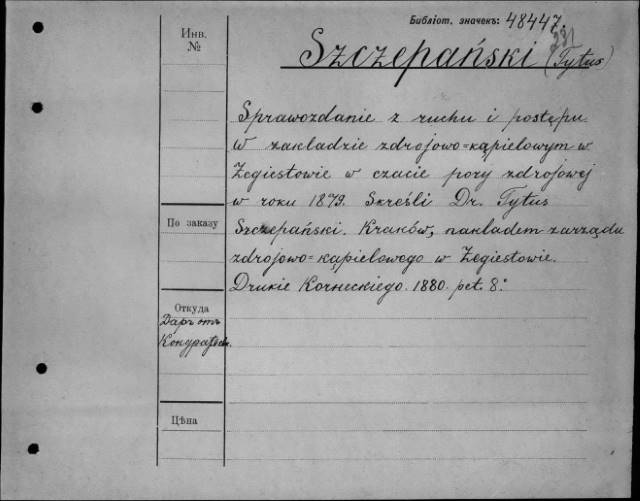 Библіот. значекъ: 48447.
331
Инв.
№
Szczepański (Tytus)
Sprawozdanie z ruchu i postępu
w zakladzie zdrojowo=kąpielowym w
Żegiestowie w czacie pory zdrojowej
w roku 1879. Skreśli Dr. Tytus
По заказу
Szczepański. Kraków, nakladem zarządu
zdrojowo=kąpielowego w Żegiestowie.
Drukie Korneckiego. 1880. pet. 8.
Откуда
Даръ отъ
Цѣна